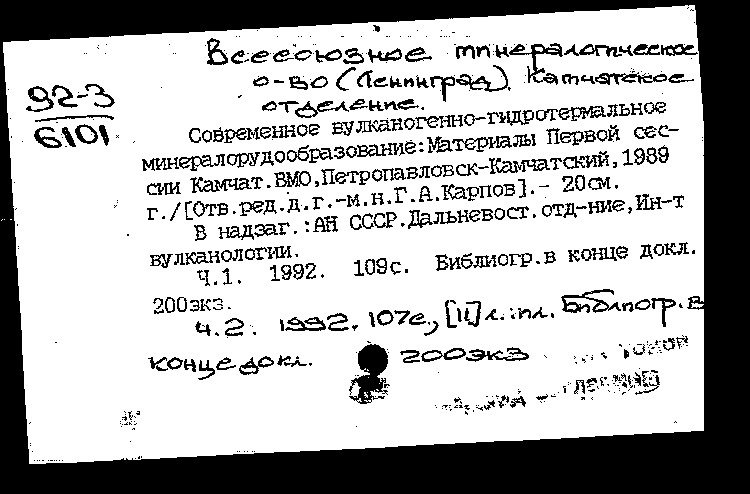 Всесоюзное минералогическое
о-во (Ленинград). Камчатское
отделение.
92-3
6101
Современное вулканогенно-гидротермальное
минералорудообразование:Материалы Первой сес-
сии Камчат.ВМО,Петропавловск-Камчатский,1989
г./[Отв.ред.д.г.-м.н.Г.А.Карпов].- 20см.
В надзаг.:АН СССР.Дальневост.отд-ние,Ин-т
вулканологии.
Ч.1. 1992. 109с. Библиогр.в конце докл.
200экз.
Ч.2. 1992. 107с., [11]л.:ил. Библиогр. в
конце докл. 200экз